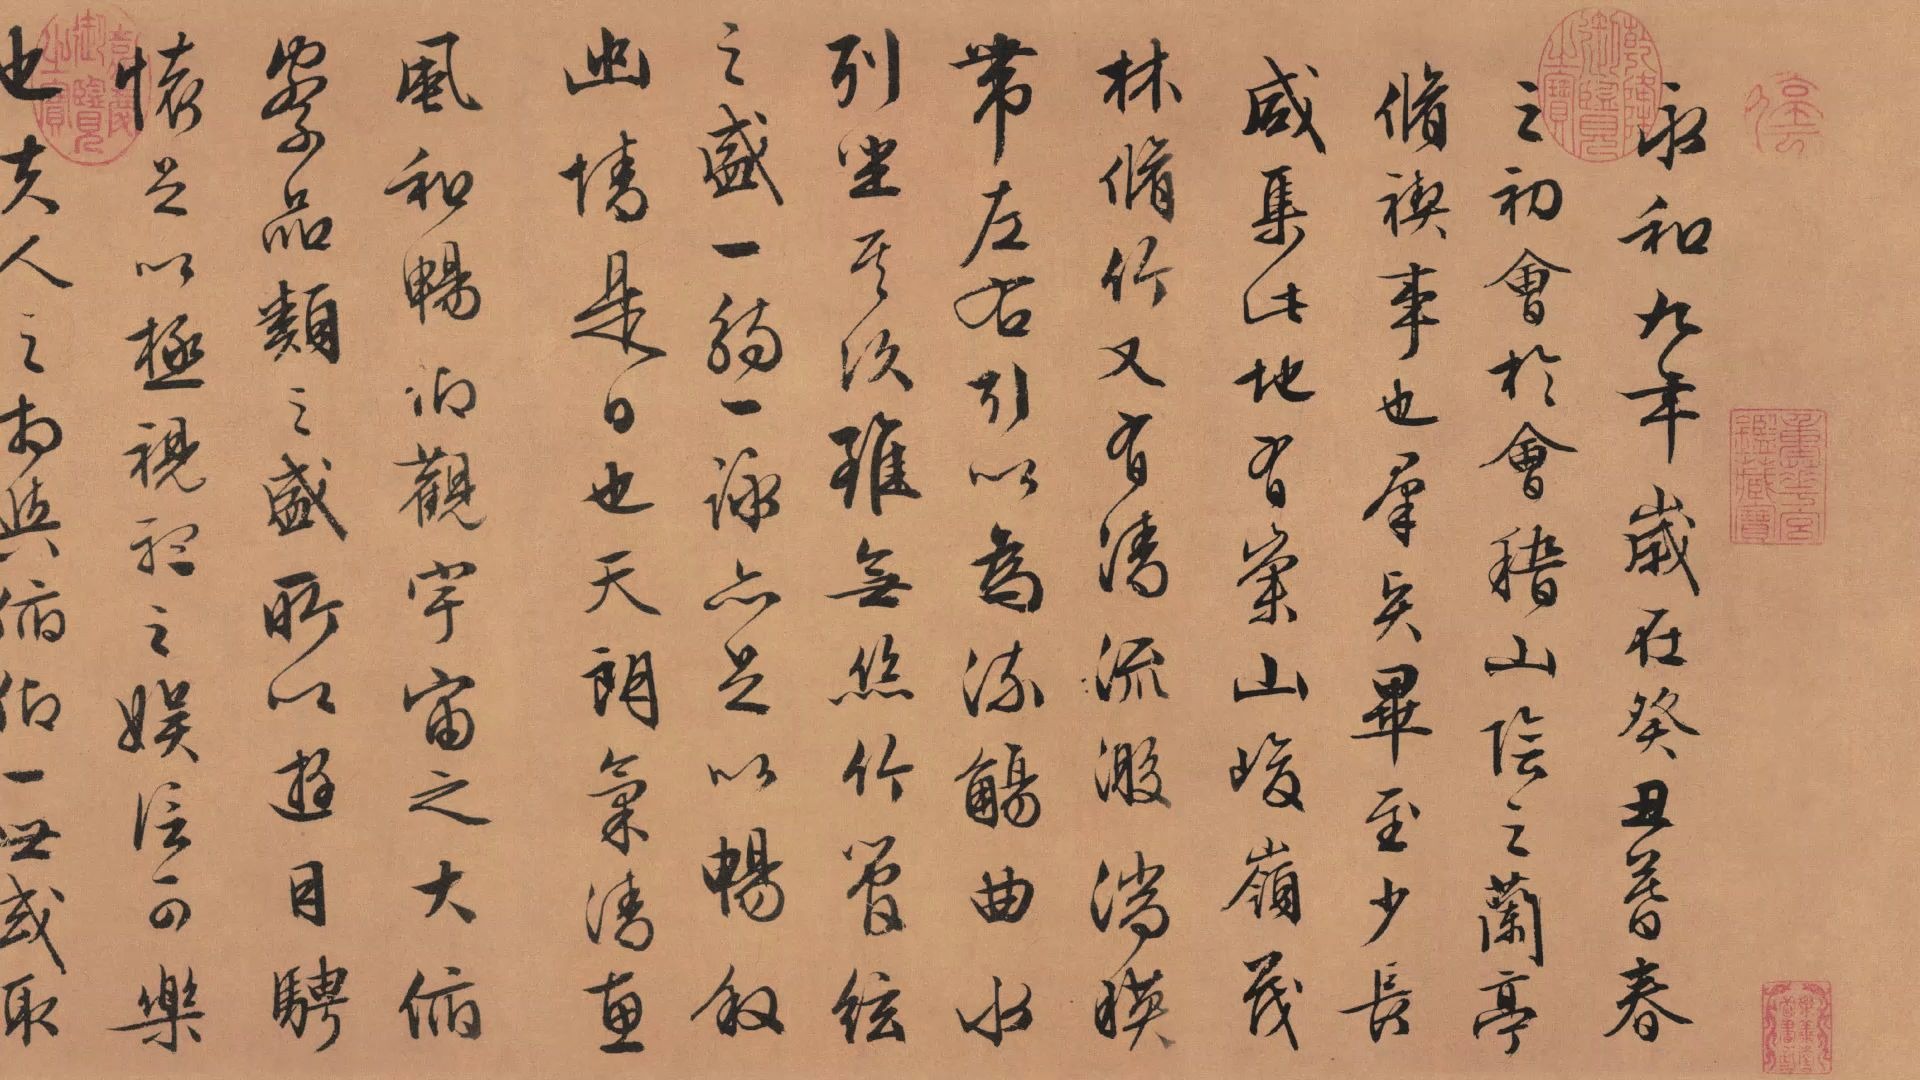 重華宮鑑藏寶
乾隆御覽之寶
永和九年歲在癸丑暮春
之初會於會稽山陰之蘭亭
脩禊事也羣賢畢至少長
咸集此地有崇山峻嶺茂
林脩竹又有清流激湍暎
帶左右引以為流觴曲水
列坐其次雖無絲竹管絃
之盛一觴一詠亦足以暢敘
幽情是日也天朗氣清惠
風和暢仰觀宇宙之大俯
察品類之盛所以遊目騁
懷足以極視聽之娛信可樂
嘉慶御覽之寶
也夫人之相與俯仰一世或取